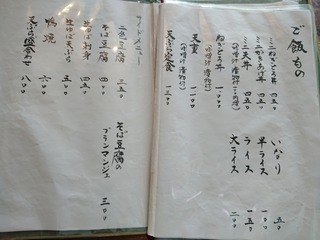 ご飯もの
ミニねぎとろ丼 四五〇
ミニかきあげ丼 四五〇
ミニ天丼 四五〇
ねぎとろ丼 一、〇〇〇
天重 一、一〇〇
天ぷら定食 一、二〇〇
いなり 五〇
半ライス 一〇〇
ライス 一五〇
大ライス 二〇〇
サイドメニュー
二色豆腐 三五〇
そば豆腐 四〇〇
生ゆば刺身 四五〇
生ゆば天ぷら 五〇〇
鴨焼 六〇〇
天ぷら盛合わせ 八〇〇
そば豆腐の
ブランマンジェ 三〇〇